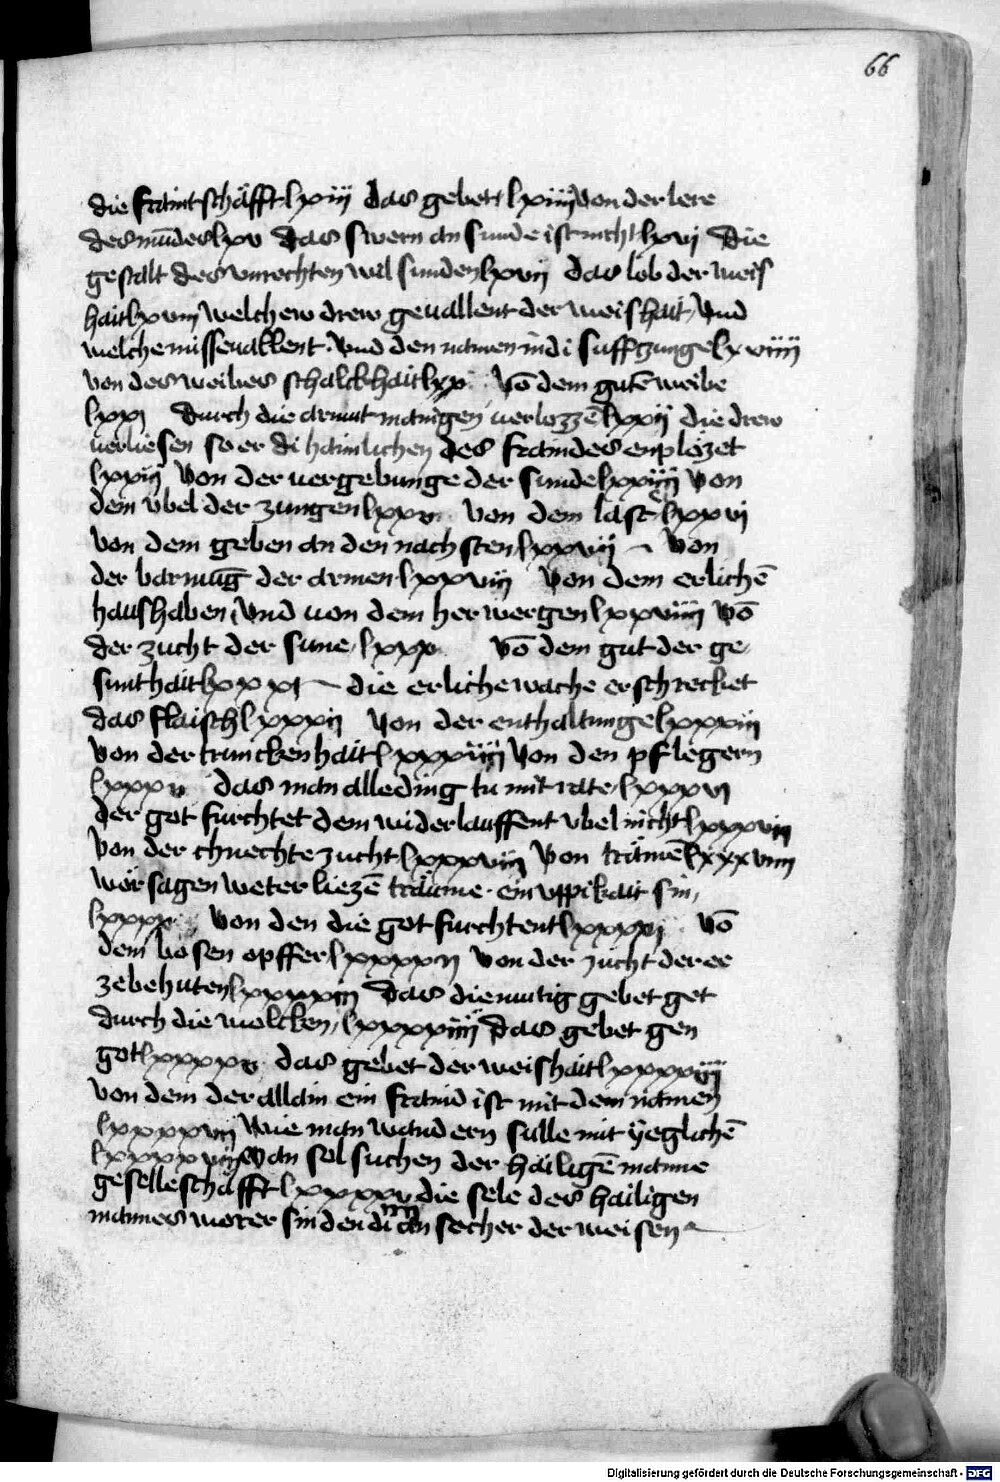 66
die fraintschäfft lxiij das gebett lxiiij Von der lere
des mūdes lxv das swern an sunde ist nicht lxvj Die
gestalt des unrechten wil sunden lxvij das lob der weis
hait lxviij welchew drew gevallent der weishait Vnd
welche missevallent. Vnd den namen in di suffzunge lxviiij
von des weibes schalckhait lxx Võ dem gutē weibe
lxxj durch die armut manigen verlozzē lxxij die drew
verliesen so er di haimlichen des fraindes enplözet
lxxiij Von der vergebunge der sunde lxxiiij Von
dem vbel der zungen lxxv Von dem last lxxvj
von dem geben an den nachsten lxxvij Von
der barmūg der armen lxxviij Von dem erlichē
haushaben Vnd von dem herwergen lxxviiij Võ
der zucht der sune lxxx Võ dem gut der ge
sunthait lxxxj die erliche wache erschrecket
das flaisch lxxxij Von der enthaltunge lxxxiij
Von der trunckenhait lxxxiiij Von den pflegern
lxxxv das man alle ding tu mit rate lxxxvj
der got furchtet dem widerlauffent vbel nicht lxxxvij
Von der chnechte zucht lxxxviij Von träumē lxxxviiij
worsagen weter liezē träume ein vppikait sin
lxxxx Von den die got furchtent lxxxxj Võ
dem bosen opffer lxxxxij Von der zucht der ee
ze behuten lxxxxiij Das diemutig gebet get
durch die wolcken lxxxxiiij das gebet gen
got lxxxxv das gebet der weishait lxxxxvj
Von dem der allain ein fraind ist mit dem namen
lxxxxvij Wie man wandern sulle mit yeglichē
lxxxxviij Man sol suchen der häiligē manne
geselleschäfft lxxxxv die sele des hailigen
mannes weter sinden di an secher der weisen